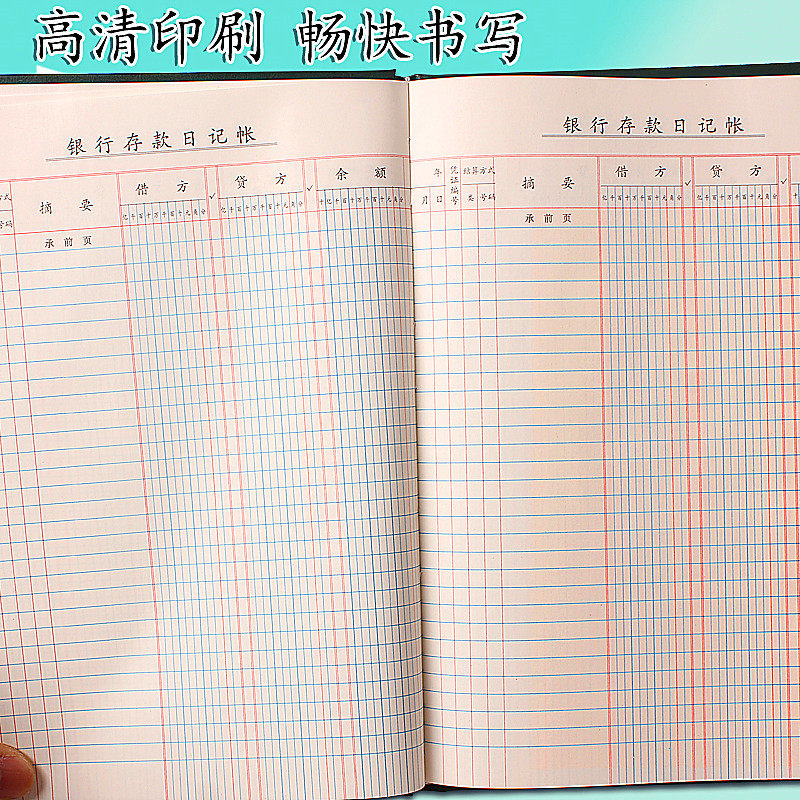 高清印刷 畅快书写
银行存款日记帐
方式
号码
摘 要
借 方
亿千百十万千百十元角分
✓
贷 方
亿千百十万千百十元角分
✓
余 额
十亿千百十万千百十元角分
承前页
银行存款日记帐
年
月 日
凭证编号
结算方式
类 号码
摘 要
借 方
亿千百十万千百十元角分
✓
贷 方
亿千百十万千百十元角分
✓
承前页